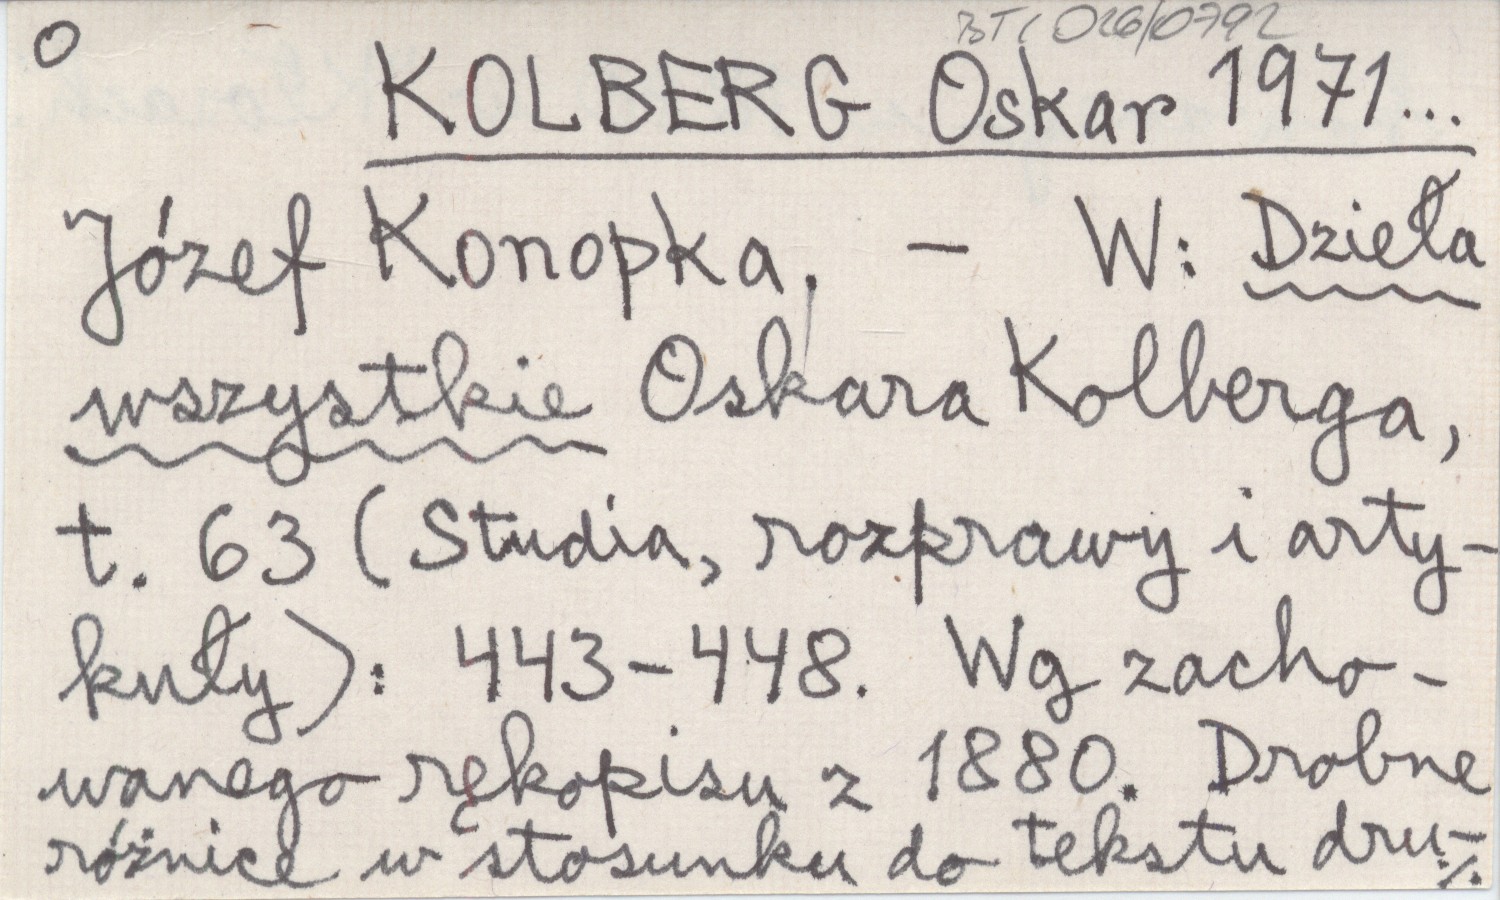 O
BT/026/0792
KOLBERG Oskar 1971...
Józef Konopka. — W: Dzieła
wszystkie Oskara Kolberga,
t. 63 (Studia, rozprawy i arty-
kuły): 443-448. Wg zacho-
wanego rękopisu z 1880. Drobne
różnice w stosunku do tekstu dru-
./.